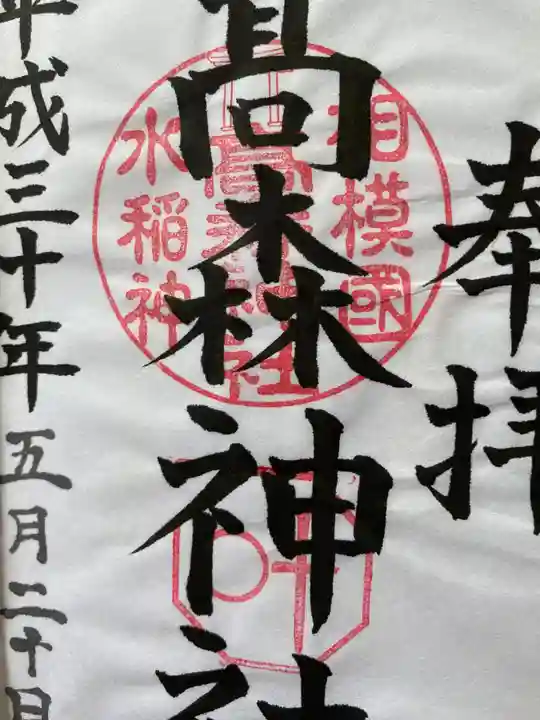 奉拝
相模國
髙森神社
水稲神
髙森神社
平成三十年五月二十日